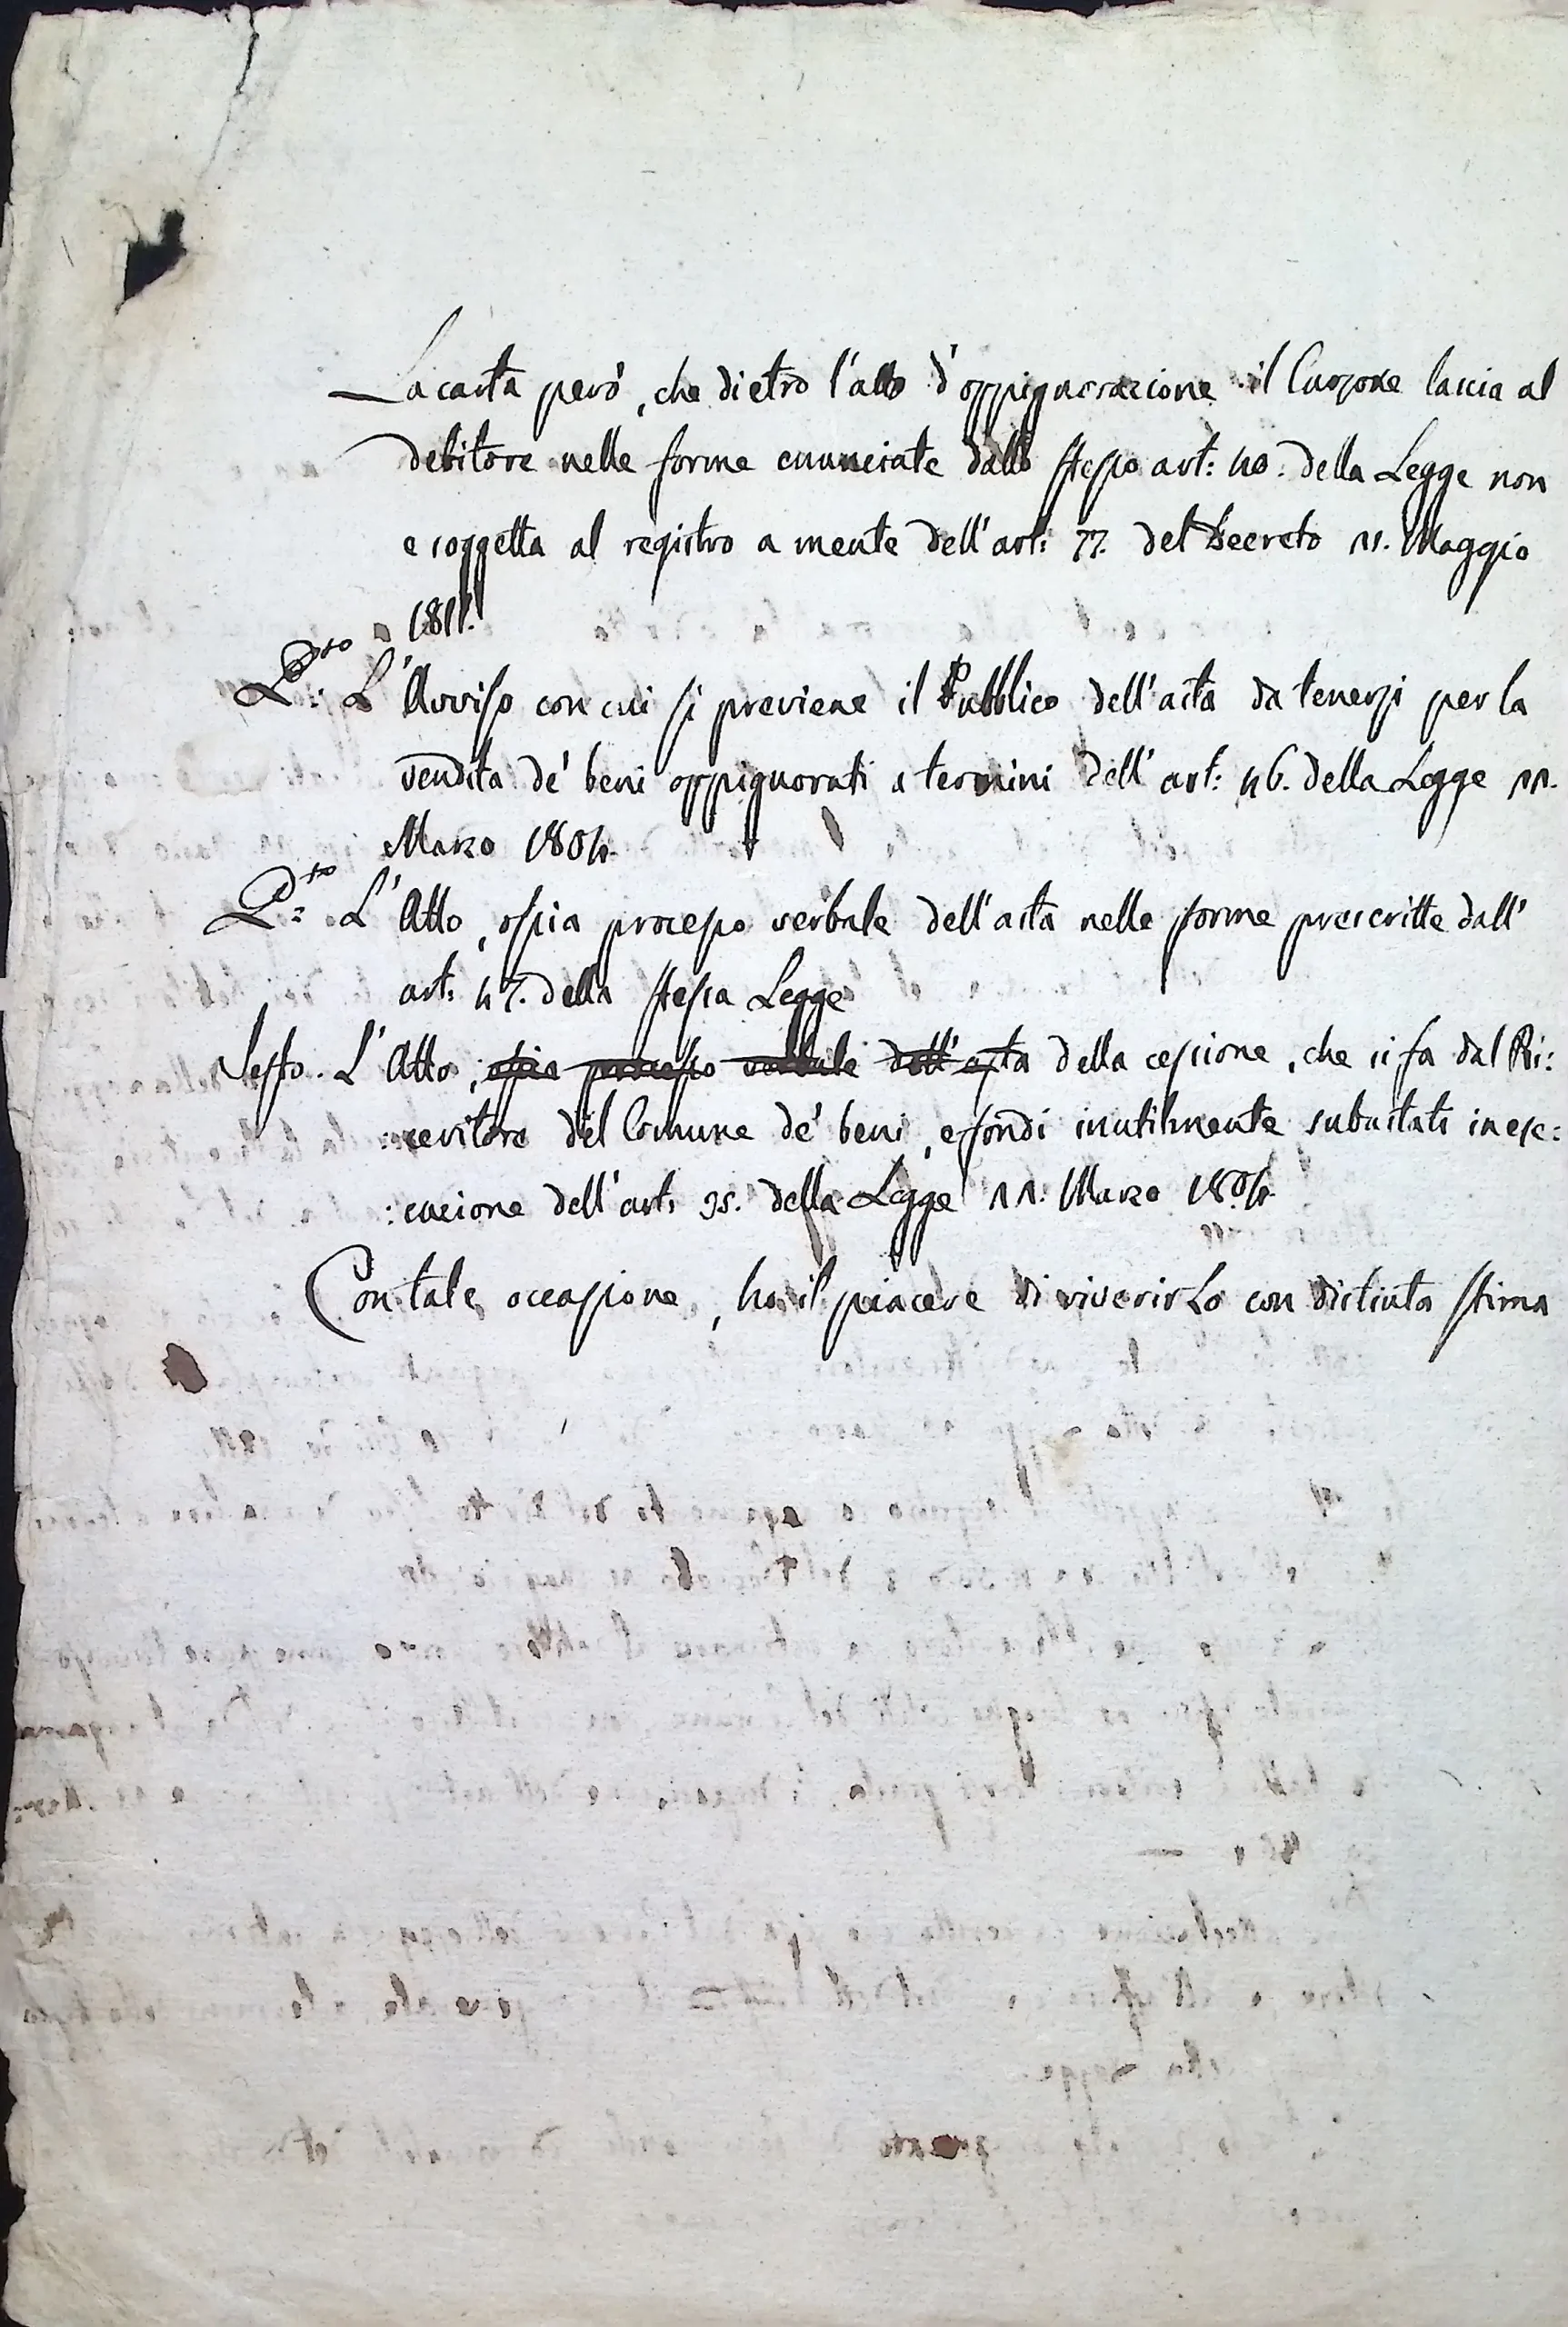 La carta però, che dietro l'atto d'oppignorazione il Cursore lascia al
debitore nelle forme enunciate dallo stesso art: 40. della Legge non
e soggetta al registro a mente dell'art: 77. del Decreto 21. Maggio
1811.
L'Avviso con cui si previene il Pubblico dell'asta da tenersi per la
vendita de' beni oppignorati a termini dell'art: 46. della Legge 22.
Marzo 1804.
L'Atto, ossia processo verbale dell'asta nelle forme prescritte dall'
art: 47. della stessa Legge
Sesto. L'Atto, ossia processo verbale dell'asta della cessione, che si fa dal Ri:
:cevitore del Comune de' beni, e fondi inutilmente subastati in ese:
:cuzione dell'art: 95. della Legge 22. Marzo 1804.
Con tale occasione, ho il piacere di riverirLo con distinta stima